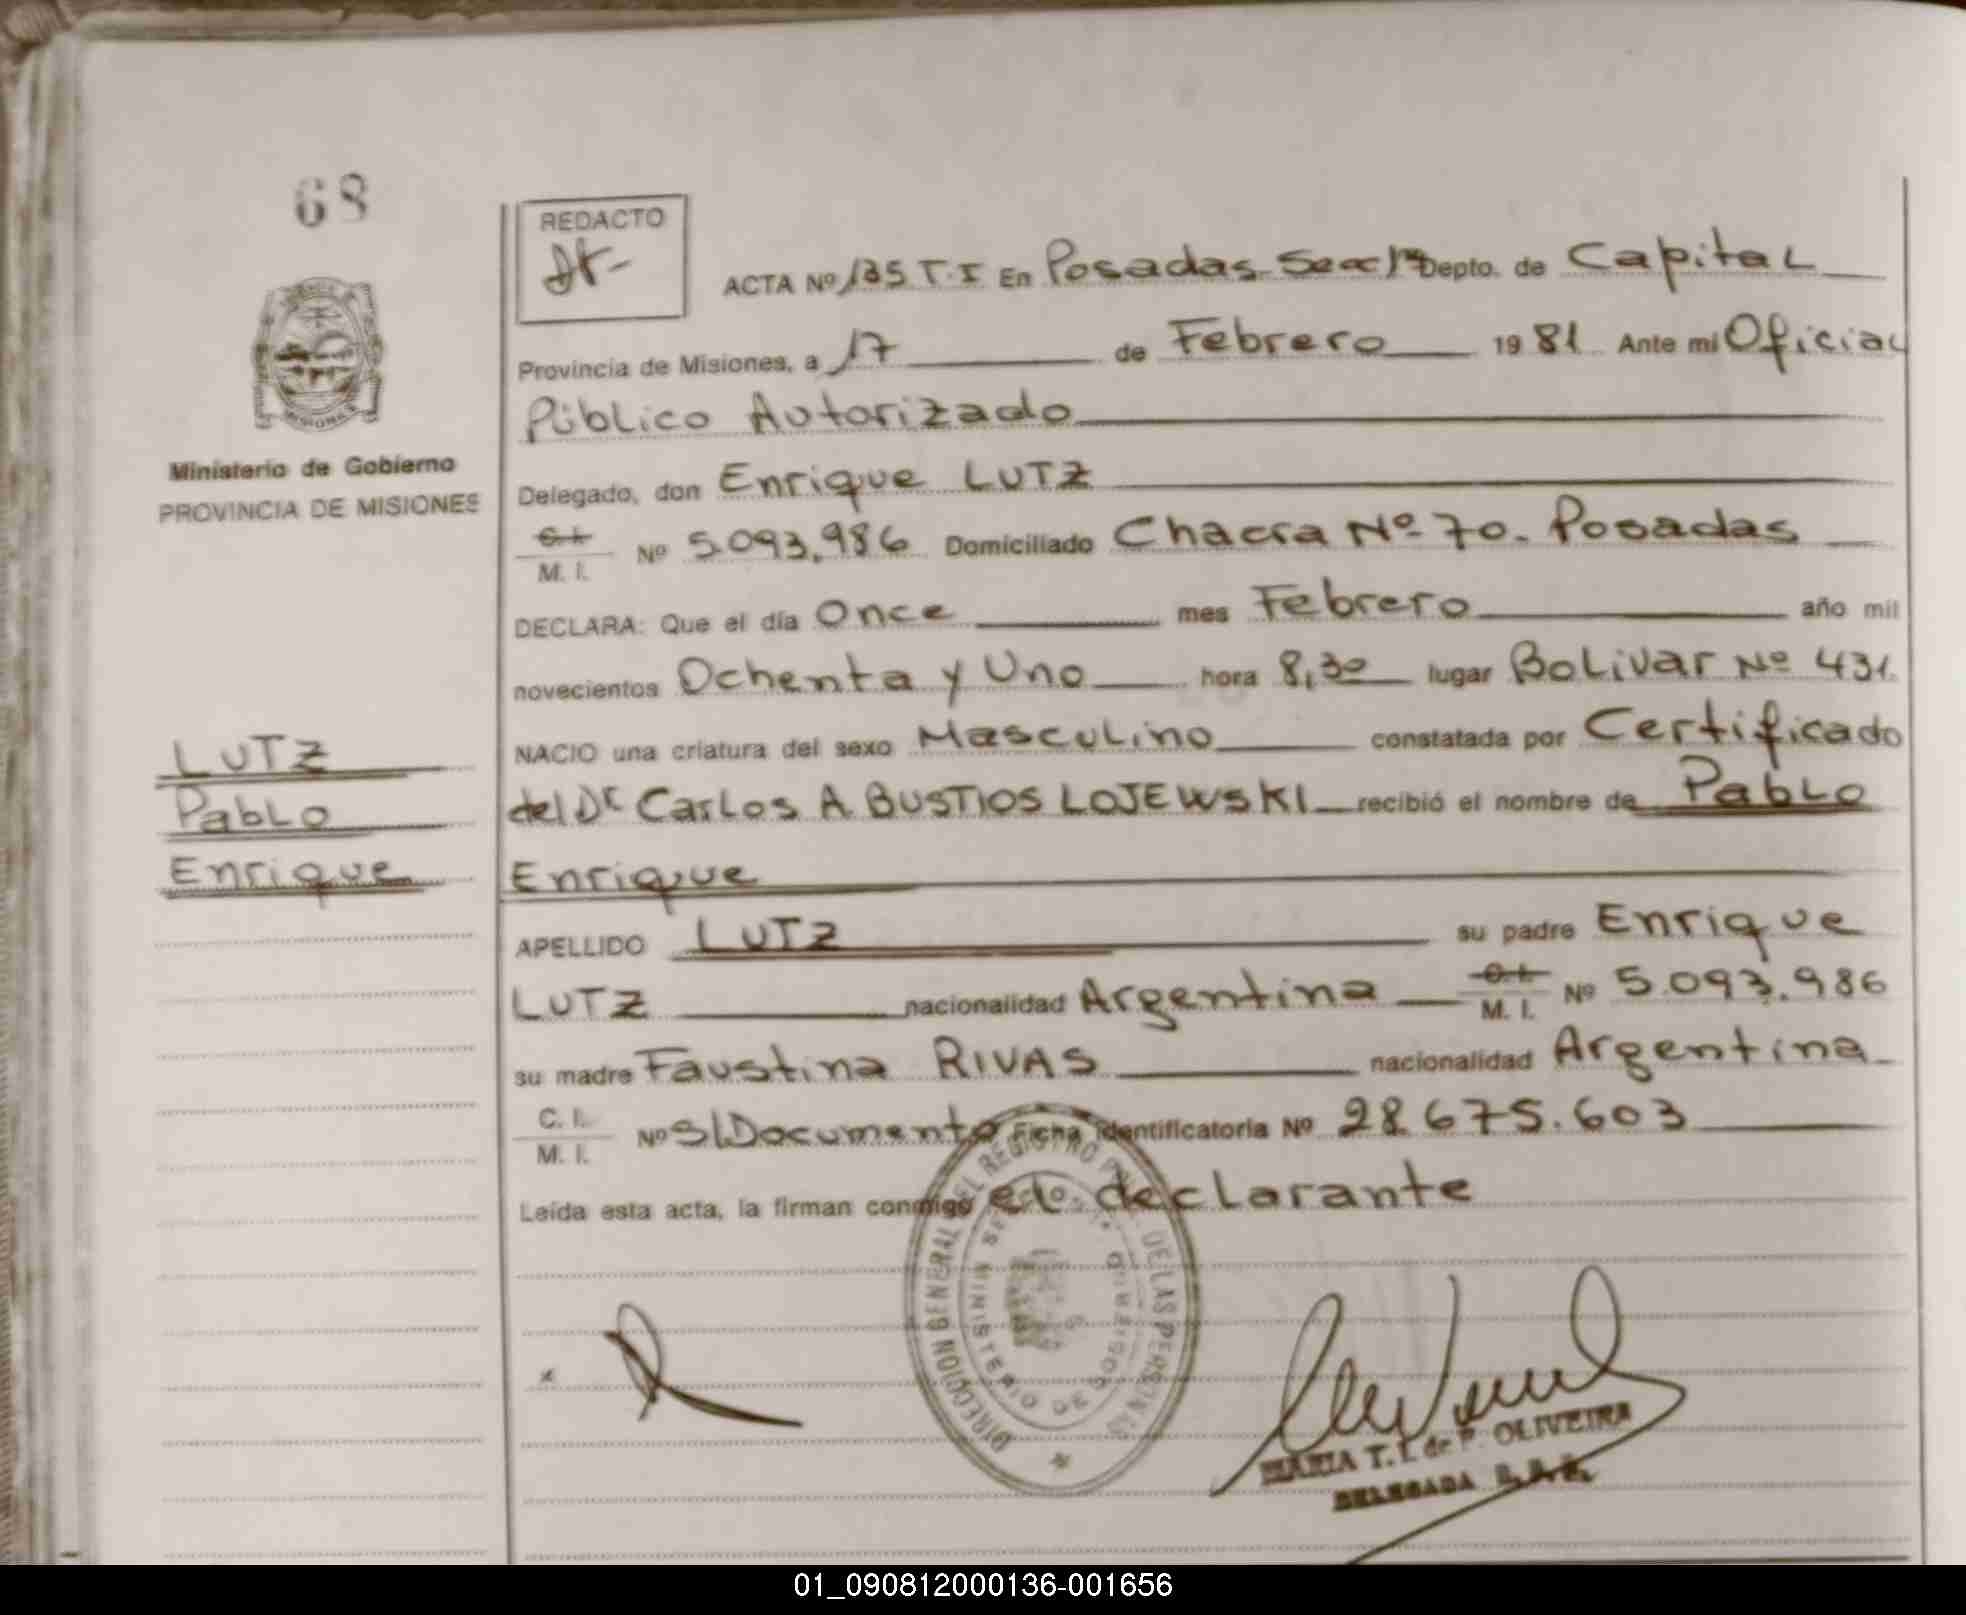 68
REDACTO
ACTA Nº 135 T.I En Posadas Secc 1ª Depto. de Capital
Provincia de Misiones, a 17 de Febrero 1981 Ante mi Oficial
Público Autorizado
Ministerio de Gobierno
PROVINCIA DE MISIONES
Delegado, don Enrique LUTZ
C.I. / M. I. Nº 5.093.986 Domiciliado Chacra Nº 70. Posadas
DECLARA: Que el día Once mes Febrero año mil
novecientos Ochenta y Uno hora 8,30 lugar BoLivar Nº 431.
NACIO una criatura del sexo Masculino constatada por Certificado
del Dr Carlos A BUSTIOS LOJEWSKI recibió el nombre de Pablo
Enrique
LUTZ
Pablo
Enrique
APELLIDO LUTZ su padre Enrique
LUTZ nacionalidad Argentina C.I. / M. I. Nº 5.093.986
su madre Faustina RIVAS nacionalidad Argentina
C. I. / M. I. Nº S/Documento Ficha Identificatoria Nº 28.675.603
Leída esta acta, la firman conmigo el declarante
DIRECCION GENERAL DEL REGISTRO DE LAS PERSONAS
MINISTERIO DE GOBIERNO
MARIA T. I. de P. OLIVEIRA
DELEGADA
01_090812000136-001656